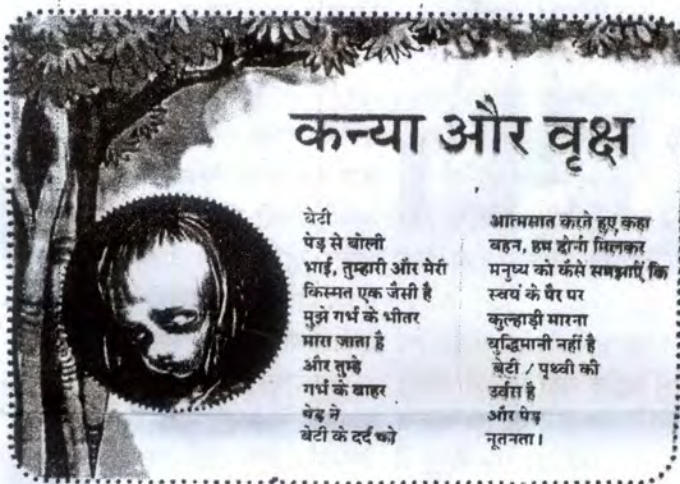 कन्या और वृक्ष
बेटी
पेड़ से बोली
भाई, तुम्हारी और मेरी
किस्मत एक जैसी है
मुझे गर्भ के भीतर
मारा जाता है
और तुम्हे
गर्भ के बाहर
पेड़ ने
बेटी के दर्द को
आत्मसात करते हुए कहा
बहन, हम दोनों मिलकर
मनुष्य को कैसे समझाएँ कि
स्वयं के पैर पर
कुल्हाड़ी मारना
बुद्धिमानी नहीं है
बेटी / पृथ्वी की
उर्वरा है
और पेड़
नूतनता।